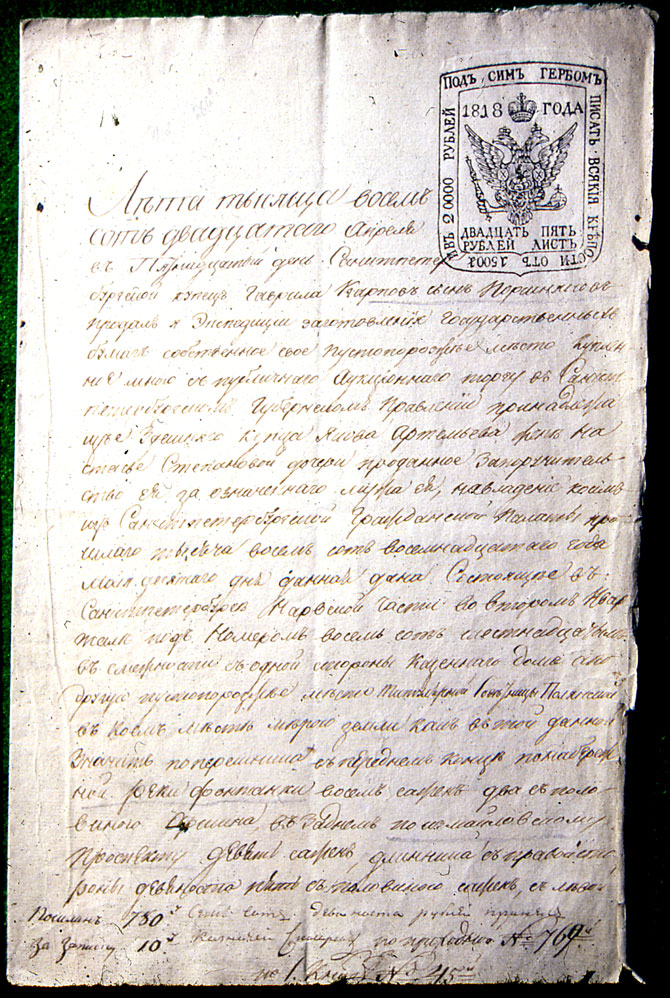 ПОДЪ СИМЪ ГЕРБОМЪ
ПИСАТЬ ВСЯКІЯ КРѢПОСТИ ОТЪ 15001
ДВѢ 20000 РУБЛЕЙ
1818 ГОДА
ДВАДЦАТЬ ПЯТЬ
РУБЛЕЙ ЛИСТЪ
Лѣта тысяща восемъ
сотъ двадцатаго Апреля
въ день Санктпетер
бургской купецъ Гаврила Карповъ сынъ
продалъ я Экспедиціи заготовленія Государственныхъ
бумагъ собственное свое пустопорожнее мѣсто куплен
ное мною съ публичнаго Аукціоннаго торгу въ Санкт
петербургскомъ Губернскомъ Правленіи принадлежа
щее купца Якова Артемьева женѣ На
стасье Степановой дочери проданное
ство ея, за означеннаго мужа ея, на владеніе коимъ
изъ Санктпетербургской Гражданской Палаты про
шлаго тысяча восемь сотъ восемнадцатаго года
Маія дня данная дана Состоящее въ
Санктпетербурге Нарвской части во второмъ Квар
тале подъ Номеромъ восемь сотъ
въ смежности съ одной стороны Казеннаго дома а по
другую пустопорожнее мѣсто
въ коемъ мѣстѣ мѣрою земли какъ въ той данной
значитъ поперешника въ переднемъ конце по набереж
ной реки Фонтанки восемь сажень два съ поло
виною Аршина, въ заднемъ по измайловскому
Проспекту девять сажень, длиннина съ правой сто
роны девяноста пять съ половиною сажень, съ левой
Пошлинъ 790 Семь сотъ девяноста рублей принялъ
За записку 10 Казначей по приходной № 769
по 1 книге № 45